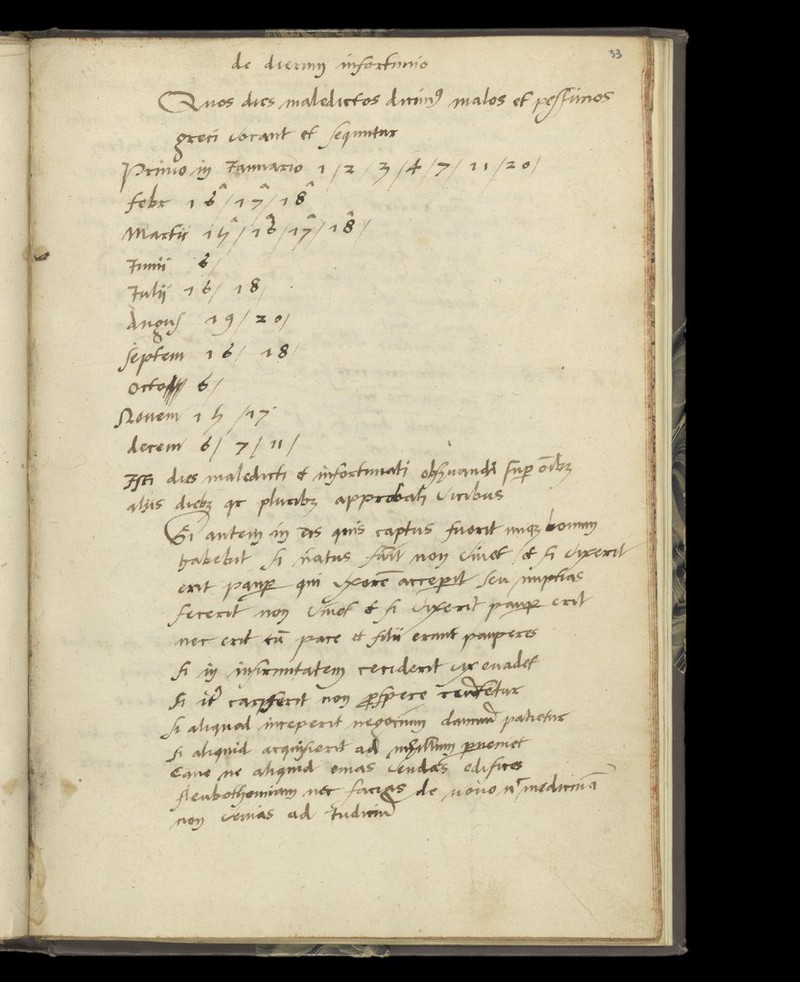 33
de dierum infortunio
Quos dies maledictos dicimus malos et pessimos
greci vocant et sequntur
Primo in Januario 1/ 2/ 3/ 4/ 7/ 11/ 20/
febr 16/ 17/ 18
Martii 15/ 16/ 17/ 18/
Junii 6/
Julij 16/ 18/
Augus 19/ 20/
Septem 16/ 18/
Octo 6/
Novem 15/ 17
decem 6/ 7/ 11/
Isti dies maledicti et infortunati observandi sup oibz
aliis diebz qr pluribz approbati vicibus
Si autem in eis quis captus fuerit nuqz bonum
habebit si natus non vivet et si vixerit
erit paup qui uxore acceperit seu nuptias
fecerit non vivet et si vixerit paup erit
nec erit cu pace et filii erunt pauperes
Si in infirmitatem ceciderit vix evadet
Si it carpserit non pspere
Si aliquod inceperit negocium damnu patietur
Si aliquid acquisierit ad nihilum pveniet
Cave ne aliquid emas vendas edifices
fleubothomiam nec facias de novo n medicina
non venias ad Judiciu